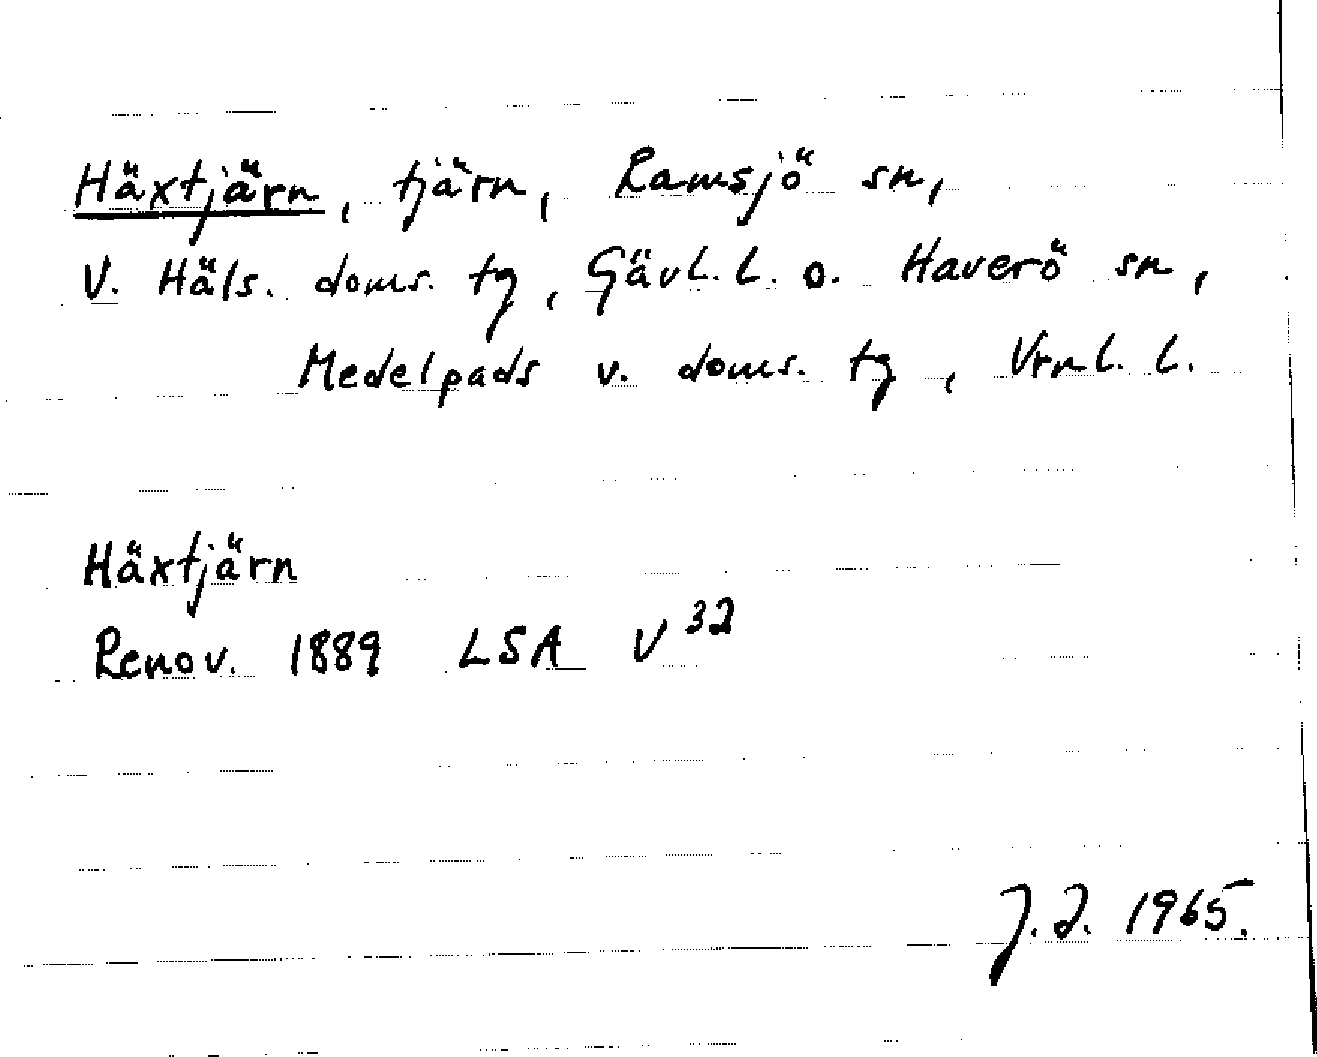 Häxtjärn, tjärn, Ramsjö sn,
V. Häls. doms. tg, Gävl. l. o. Haverö sn,
Medelpads v. doms. tg, Vrnl. l.
Häxtjärn
Renov. 1889 LSA V³²
J.J. 1965.